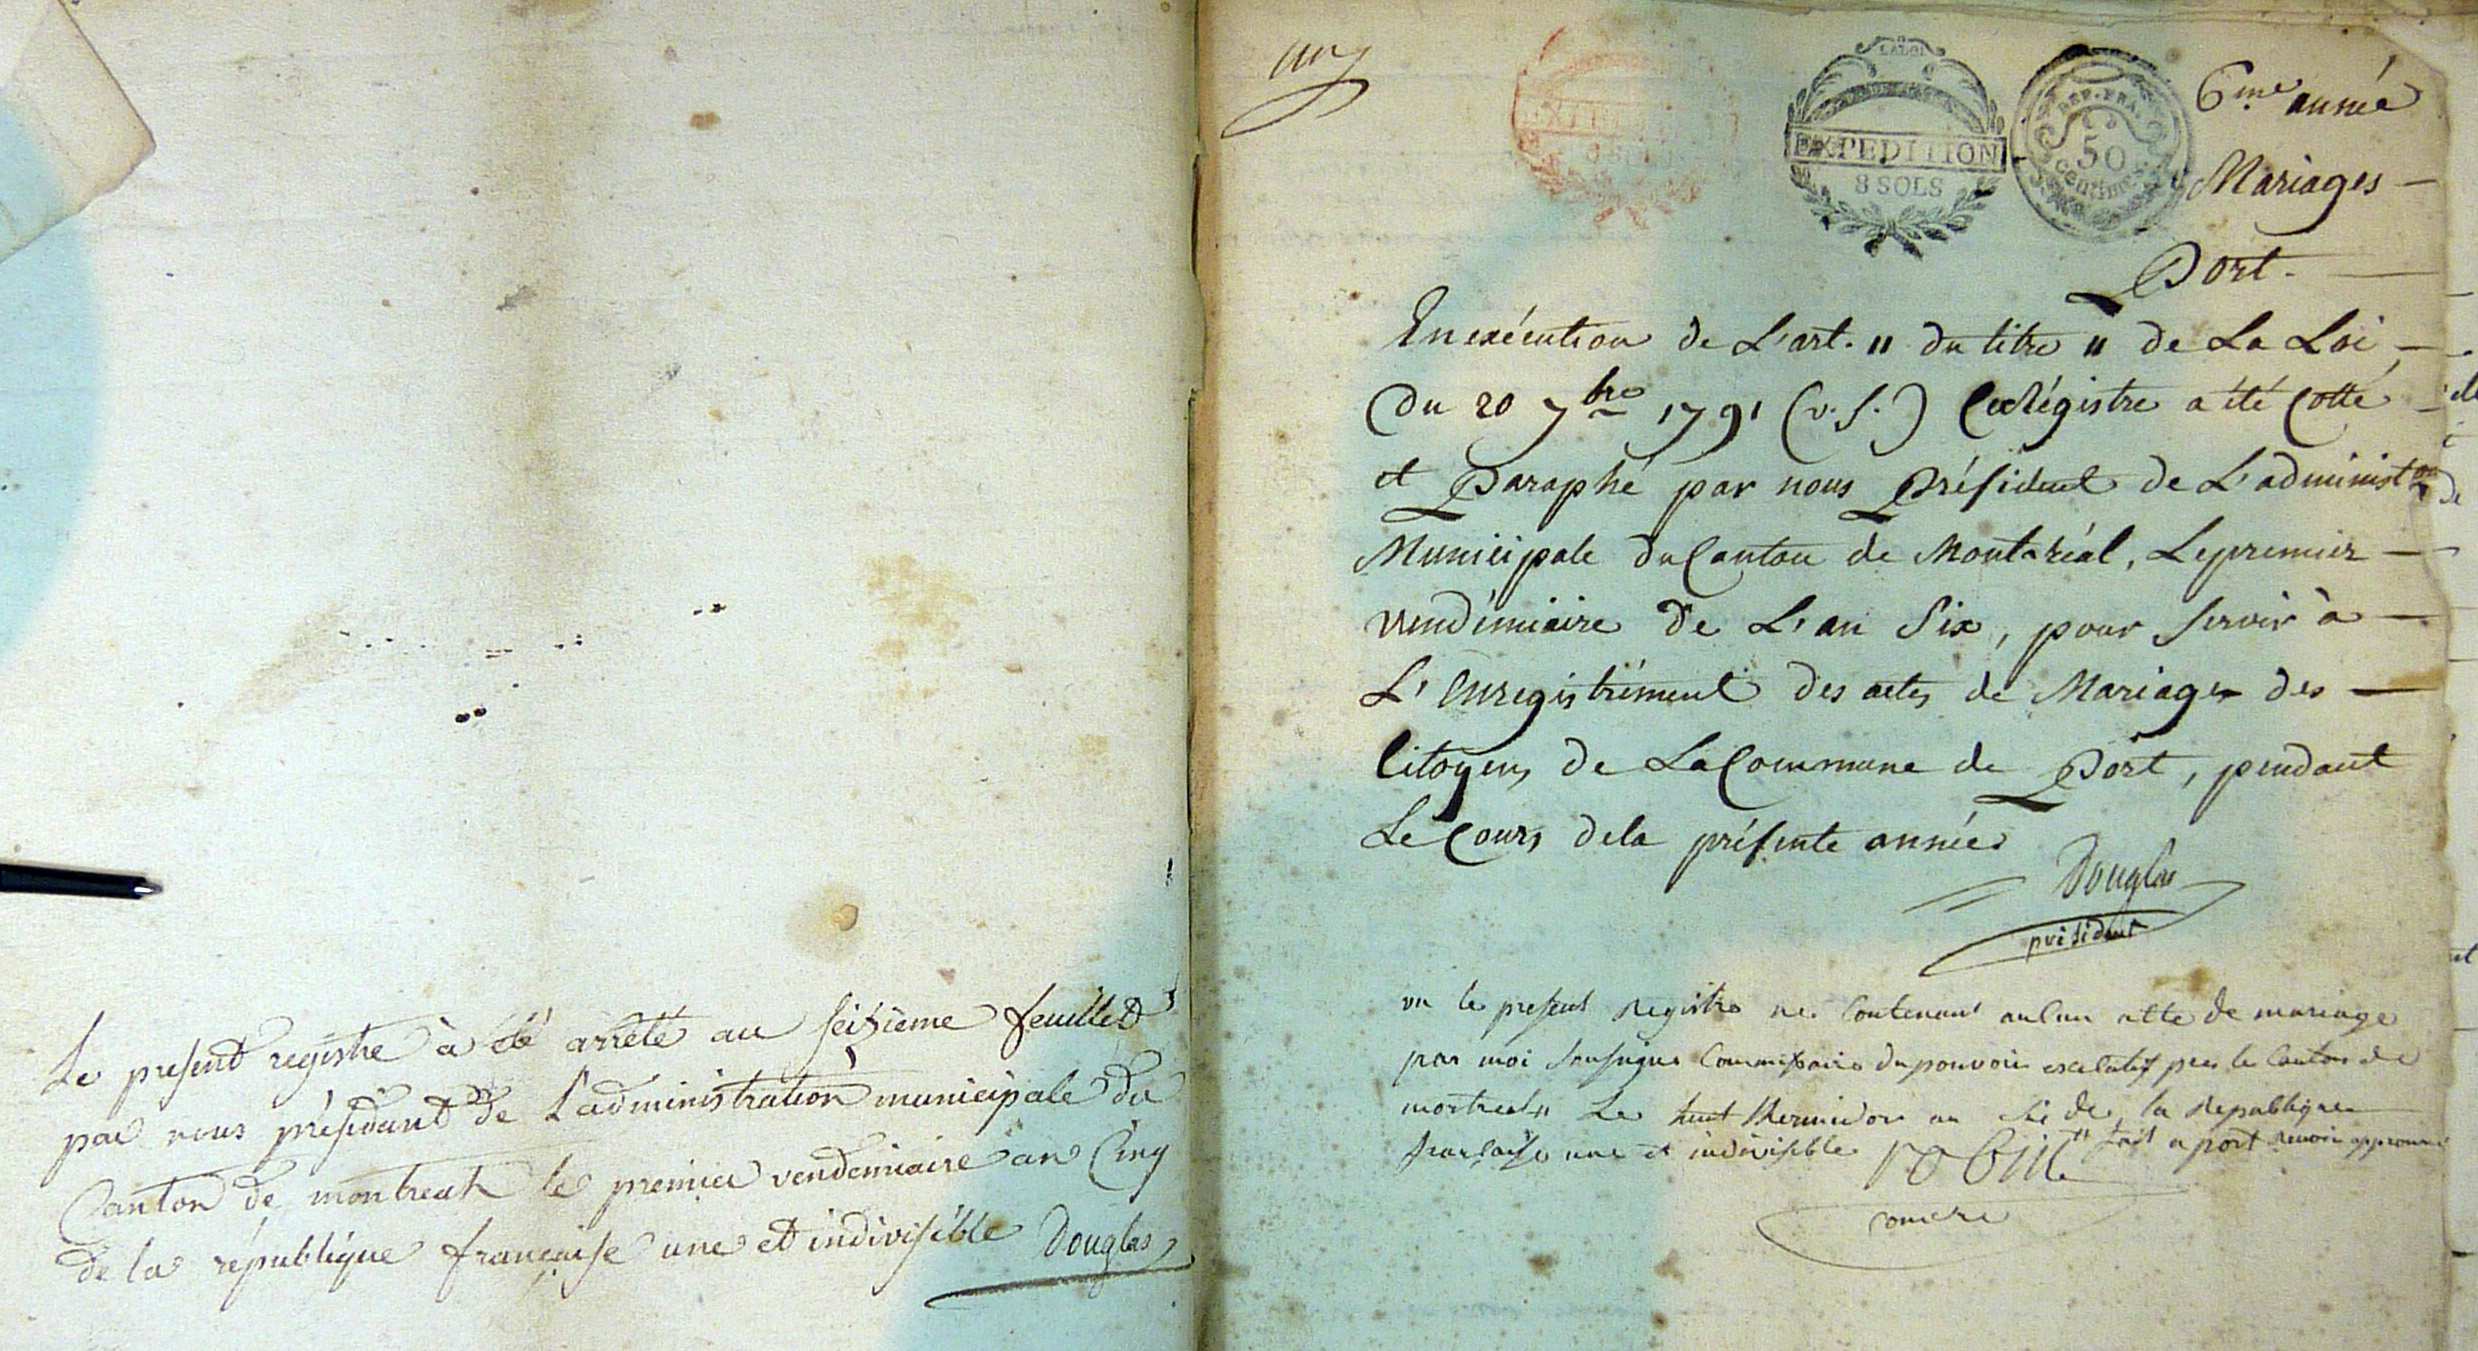 Le present registre à été arrêté au seizieme feuillet
par nous président de l'administration municipale du
Canton de montreal le premier vendemiaire an Cinq
de la république française une et indivisible Douglas
un
EXPEDITION
8 SOLS
REP. FRA.
50
centimes
6.me année
Mariages —
Port. —
En exécution de L'art. " du titre " de La Loi —
Du 20 7bre 1791 (v. s.) Ce Régistre a été Cotté
et Paraphé par nous Président de L'administon
Municipale du Canton de Montréal, Le premier —
Vendémiaire de L'an Six, pour servir à —
L'Enregistrément des actes de Mariages des —
Citoyens de La Commune de Port, pendant
Le Cours de la présente année
Douglas
président
vu le present Registre ne Contenant aucun acte de mariage
par moi Soussigné Commissaire du pouvoir executif pres le Canton de
montreal " Le huit thermidor an Six de la Republique
francaise une et indivisible " fait a port